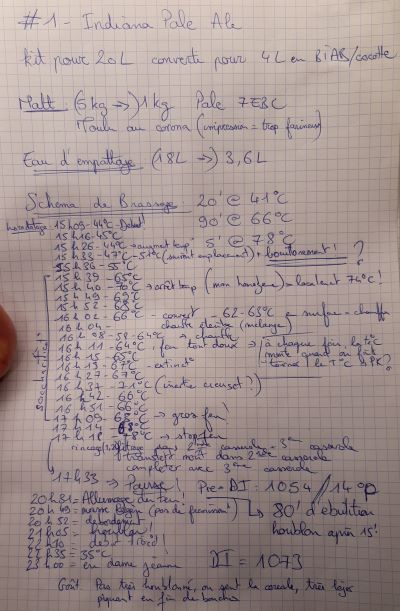 #1 - Indiana Pale Ale
kit pour 20L converti pour 4L en BIAB/cocotte
Malt (5kg →) 1kg Pale 7EBC
Moulu au corona (impression = trop farineux)
Eau d'empattage (18L →) 3,6L
Schéma de Brassage : 20' @ 41°C
90' @ 66°C
5' @ 78°C
horodatage 15h09 - 44°C - Début!
15h16 - 45°C
15h26 - 44°C → augment temp°
15h33 - 47°C - 51°C (suivant emplacement) + bouillonnement! ?
15h36 - 55°C
15h39 - 65°C
15h40 - 70°C → arrêt temp (mon homogène) → localement 74°C!
15h49 - 69°C
15h52 - 68°C
16h02 - 66°C - couvert - 62-63°C en surface → chauffe
16h04 - chauffe élevée (mélange)
16h08 - 58-64°C → chauffe
16h11 - 64°C → feu tout doux → à chaque fois, la t°C
16h15 - 65°C monte quand on fait
16h19 - 67°C - extinct° tourner! le T°C
16h27 - 67°C
16h37 - 71°C (inertie creuset?)
16h42 - 66°C
16h51 - 66°C
17h09 - 68°C → gros feu!
17h14 - 68°C
17h18 - 78°C → stop feu
Saccharification
rinçage 1,2L filtrage dans 2ème casserole - 3ème casserole
transfert moût dans 2ème casserole
compléter avec 3ème casserole
17h33 → Pause! Pre-DI: 1054 / 14°P
20h31 = Allumage du feu! ↳ 80' d'ébullition
houblon après 15'
20h52 = débordement
21h05 = houblon!
22h35 = 35°C DI = 1073
23h00 = en dame jeanne
Goût Pas très houblonné, on sent la céréale, très léger
piquant en fin de bouche